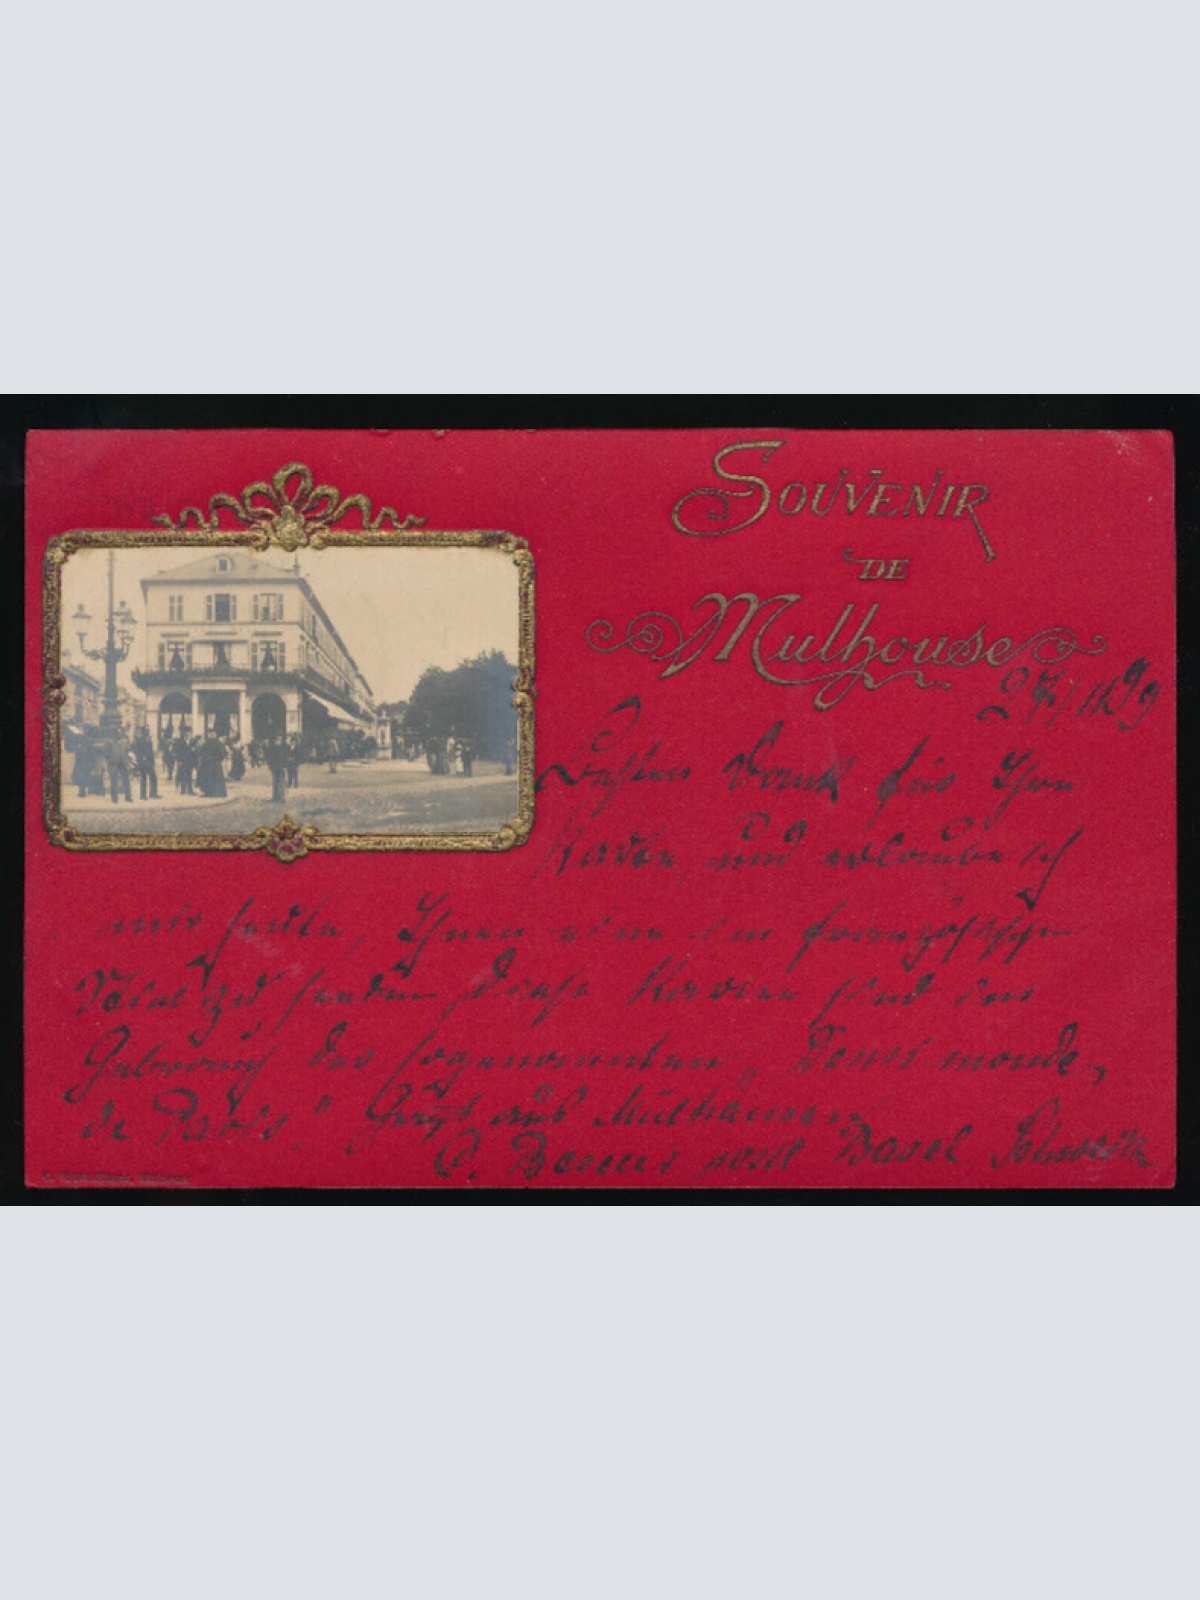 SOUVENIR
DE
Mulhouse
27/11 99
Besten Dank für Ihre
Karte, und erlaube ich
mir heute, Ihnen eine im französischen
zu senden diese Karten sind
der sogenannten "Demi monde,
de Paris." Gruß aus Mülhausen
Basel Schweiz